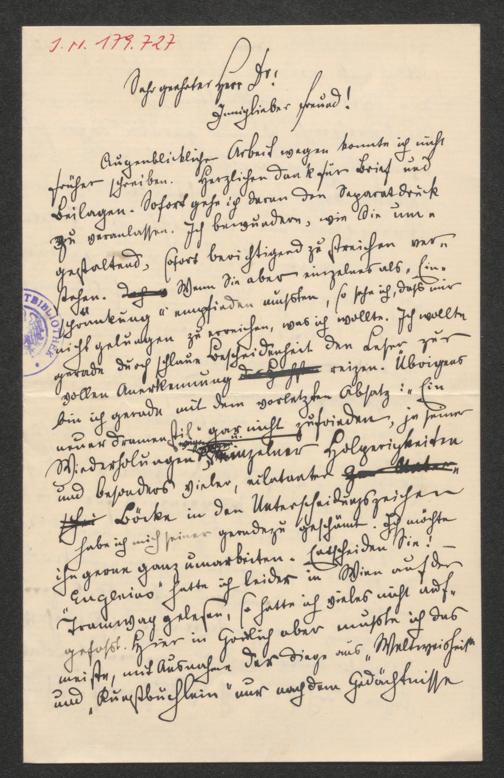 J. N. 179.727
Sehr geehrter Herr Dr:
Inniglieber Freund!
Augenblicklicher Arbeit wegen konnte ich nicht
früher schreiben. Herzlichen Dank für Brief und
Beilagen. Sofort gehe ich daran den Separatdruck
zu veranlassen. Ich bewundere, wie Sie um=
gestaltend, sofort berichtigend zu streichen ver=
stehen. Wenn Sie aber einzelnes als „Ein=
schränkung" empfinden mußten, so sehe ich, daß mir
nicht gelungen zu erreichen, was ich wollte. Ich wollte
gerade durch schlaue Bescheidenheit den Leser zur
vollen Anerkennung reizen. Übrigens
bin ich gerade mit dem vorletzten Absatz: „Ein
neuer Dramenstil" gar nicht zufrieden, ja seiner
Wiederholungen, wegen einzelner Holperigkeiten
und besonders vieler, eilatanter
Böcke in den Unterscheidungszeichen
habe ich mich seiner geradezu geschämt. Ich möchte
ihn gerne ganz umarbeiten. Entscheiden Sie! —
hatte ich leider in Wien auf der
Tramway gelesen, so hatte ich vieles nicht auf=
gefasst. Hier in aber mußte ich das
meiste, mit Ausnahme der Dinge aus „Weltweisheit"
und „Kunstbüchlein" nur nach dem Gedächtnisse
TBIBLIOTHEK